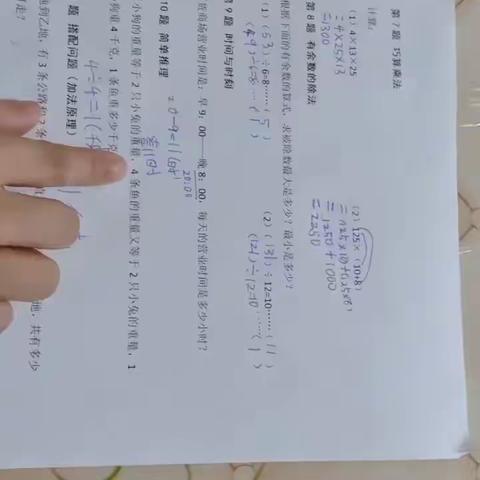 第 7 题 巧算乘法
计算：
(1) 4×13×25
=4×25×13
=1300
(2) 125×(10+8)
=125×10+(125×8)
=1250+1000
=2250
第 8 题 有余数的除法
根据下面的有余数的算式，求被除数最大是多少？最小是多少？
(1) (53)÷6=8……(5)
(49)÷6=8……(1)
(2) (131)÷12=10……(11)
(121)÷12=10……(1)
第 9 题 时间与时刻
货商场营业时间是：早 9：00——晚 8：00，每天的营业时间是多少小时？
20:00
20-9=11(时)
答:11时
10 题 简单推理
小狗的重量等于 2 只小兔的重量，4 条鱼的重量又等于 2 只小兔的重量，1
狗重 4 千克，1 条鱼重多少千克
4÷4=1(千
题 搭配问题（加法原理）
地到乙地，有 3 条公路和 2 条
地，共有多少
走？